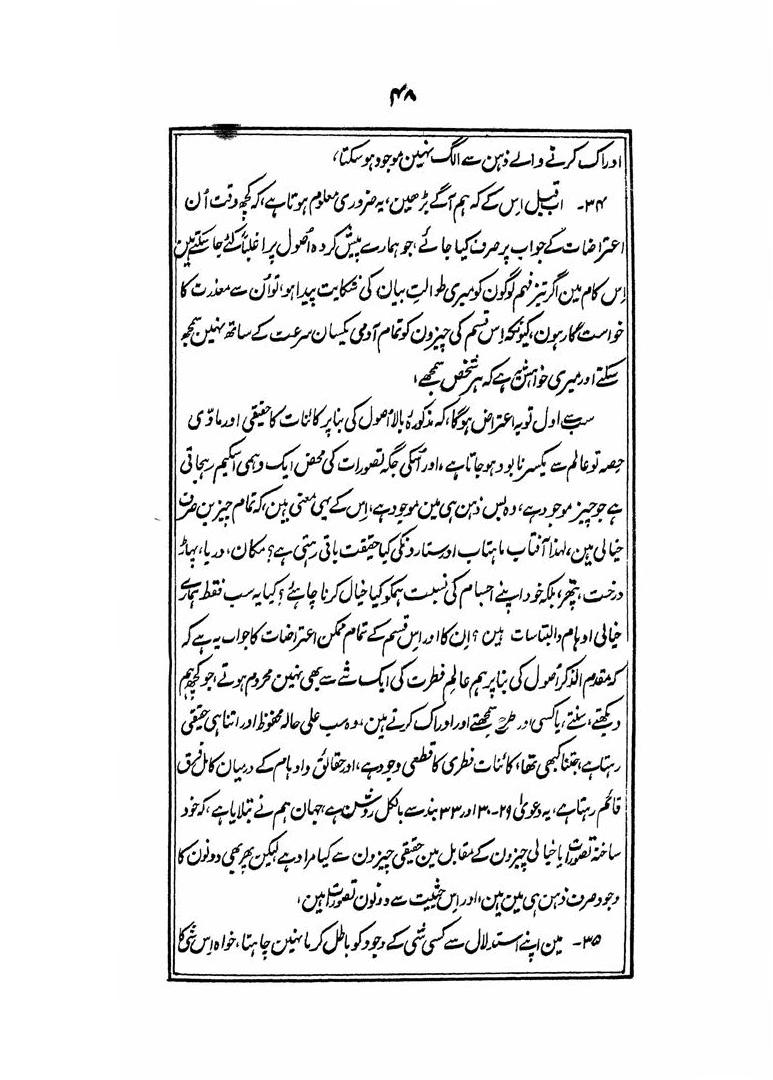 ۴۸
ادراک کرنے والے ذہن سے الگ نہین موجود ہو سکتا،
۳۴- اقبیل اس کے کہ ہم آگے بڑھین، یہ ضروری معلوم ہوتا ہے، کہ کچھ وقت اُن
اعتراضات کے جواب پر صرف کیا جائے، جو ہمارے پیش کردہ اُصول پر اغلباً کئے جا سکتے ہین
اِس کام مین اگر تیز فہم لوگون کو میری طوالتِ بیان کی شکایت پیدا ہو، تو اُن سے معذرت کا
خواستگار ہون، کیونکہ اِس قسم کی چیزون کو تمام آدمی یکسان سرعت کے ساتھ نہین سمجھ
سکتے اور میری خواہش یہ ہے کہ ہر شخص سمجھے،
سب سے اول تو یہ اعتراض ہو گا، کہ مذکورہ بالا اُصول کی بنا پر کائنات کا حقیقی اور مادّی
حصہ تو عالم سے یکسر نابود ہو جاتا ہے، اور اُسکی جگہ تصورات کی محض ایک وہمی اسکیم رہجاتی
ہے جو چیز موجود ہے، وہ بس ذہن ہی مین موجود ہے، اِس کے یہی معنی ہین، کہ تمام چیزین صرف
خیالی ہین، لہذا آفتاب ماہتاب اور ستارونکی کیا حقیقت باقی رہتی ہے؟ مکان، دریا، پہاڑ
درخت، پتھر، بلکہ خود اپنے اجسام کی نسبت ہمکو کیا خیال کرنا چاہئے؟ کیا یہ سب فقط ہمارے
خیالی اوہام والتباسات ہین؟ اِن کا اور اس قسم کے تمام ممکن اعتراضات کا جواب یہ ہے کہ
کہ مقدم الذکر اُصول کی بنا پر ہم عالمِ فطرت کی ایک شے سے بھی نہین محروم ہوتے، جو کچھ ہم
دیکھتے، سنتے، یا کسی اور طرح سمجھتے اور ادراک کرتے ہین، وہ سب علی حالہ محفوظ اور اتنا ہی حقیقی
رہتا ہے، جتنا کبھی تھا، کائنات فطری کا قطعی وجود ہے، اور حقائق و اوہام کے درمیان کامل فرق
قائم رہتا ہے، یہ دعویٰ ۲۹-۳۰ اور ۳۳ بند سے بالکل روشن ہے، جہان ہم نے بتلایا ہے، کہ خود
ساختہ تصورات یا خیالی چیزون کے مقابل مین حقیقی چیزون سے کیا مراد ہے لیکن پھر بھی دونون کا
وجود صرف ذہن ہی مین ہین، اور اِس حیثیت سے دونون تصورات ہین،
۳۵- مین اپنے استدلال سے کسی شئی کے وجود کو باطل کرنا نہین چاہتا، خواہ اِس شئی کا